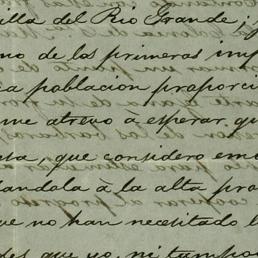 illa del Rio Grande;
no de los primeras imp
a poblacion proporci
me atrevo a esperar qu
ta, que considero em
andola à la alta pro
ue no han necesitado l
des que yo, ni tampo